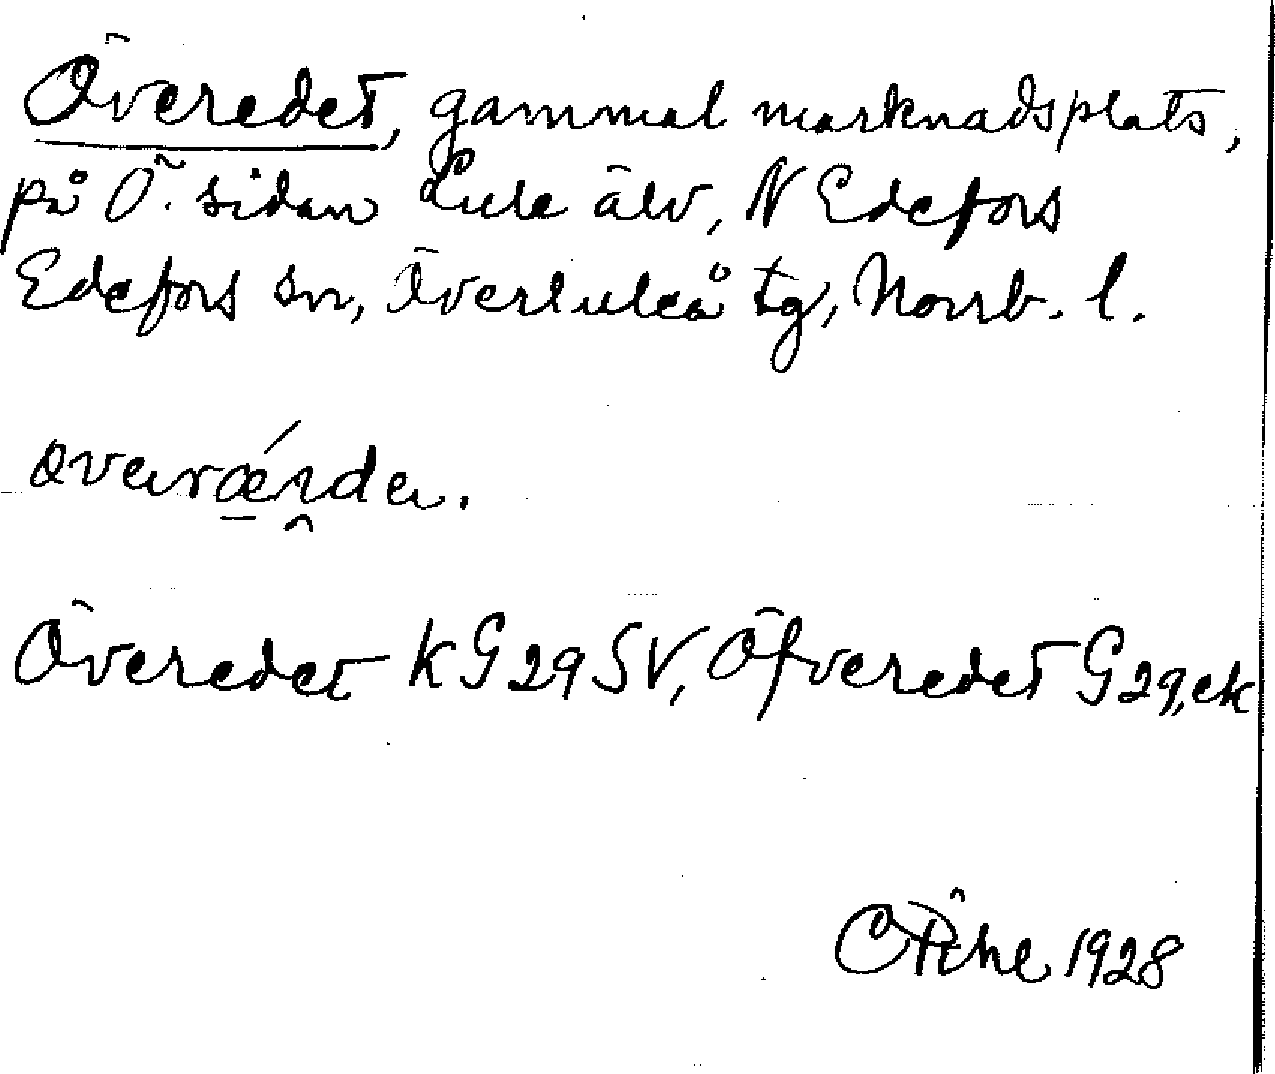 Överedet, gammal marknadsplats,
på Ö. sidan Lule älv, N Edefors
Edefors sn, Överluleå tg, Norrb. l.
Överedet k G29SV, Öfveredet G29, ek
1928